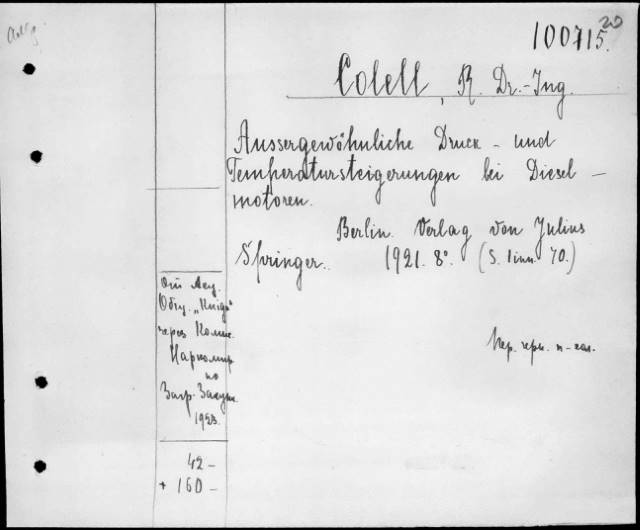 20
100715.
Colell, R. Dr.-Ing.
Aussergewöhnliche Druck- und
Temperatursteigerungen bei Diesel-
motoren.
Berlin. Verlag von Julius
Springer. 1921. 8°. (S. 70.)
От
Общ. „Книга"
через Комис.
по
Загр. Закуп.
1923.
42 –
+ 160 –